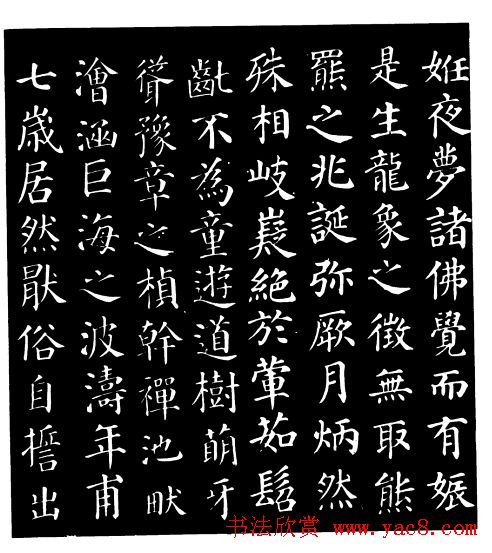 姙夜夢諸佛覺而有娠
是生龍象之徵無取熊
羆之兆誕弥厥月炳然
殊相岐嶷絕於葷茹髫
齓不為童遊道樹萌牙
聳豫章之楨幹禪池畎
澮涵巨海之波濤年甫
七歲居然厭俗自誓出
书法欣赏 www.yac8.com